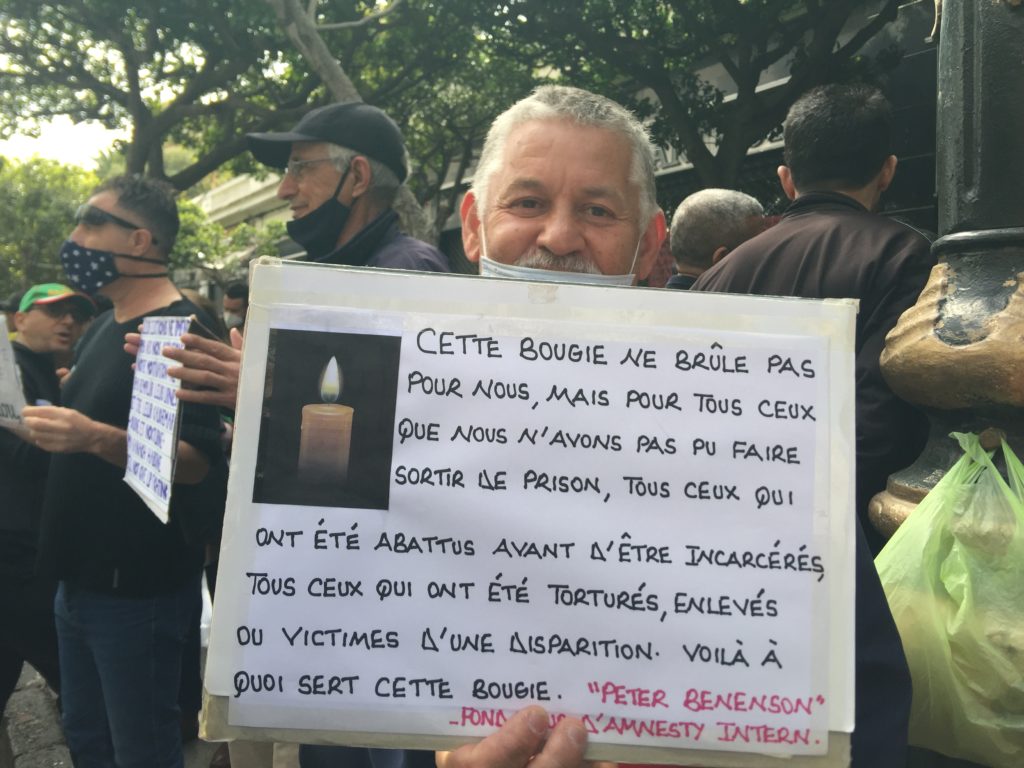 CETTE BOUGIE NE BRÛLE PAS
POUR NOUS, MAIS POUR TOUS CEUX
QUE NOUS N'AVONS PAS PU FAIRE
SORTIR DE PRISON, TOUS CEUX QUI
ONT ÉTÉ ABATTUS AVANT D'ÊTRE INCARCÉRÉS,
TOUS CEUX QUI ONT ÉTÉ TORTURÉS, ENLEVÉS
OU VICTIMES D'UNE DISPARITION. VOILÀ À
QUOI SERT CETTE BOUGIE. "PETER BENENSON"
D'AMNESTY INTERN.